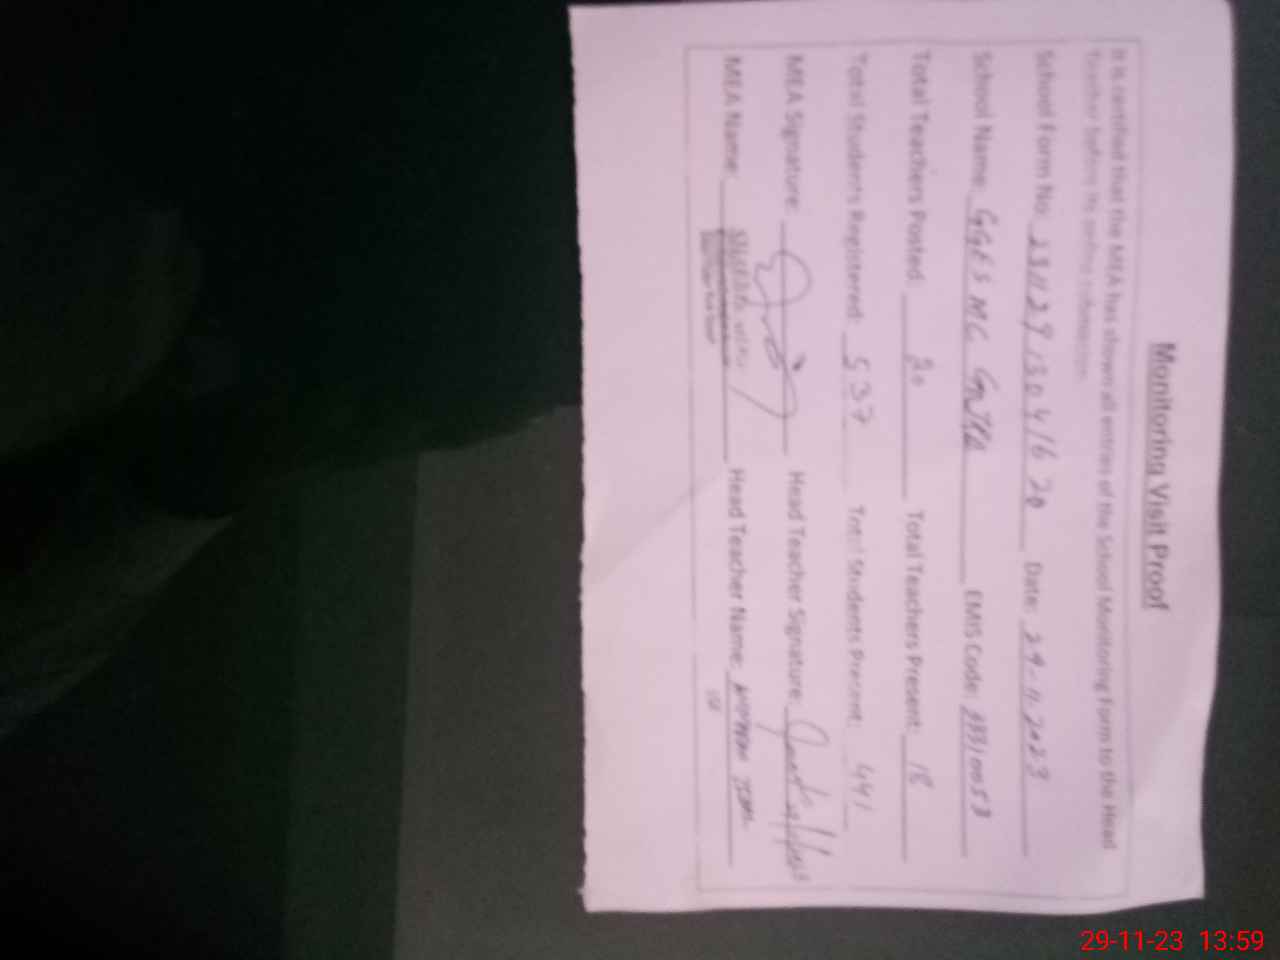 Monitoring Visit Proof
It is certified that the MEA has shown all entries of the School Monitoring Form to the Head
Teacher before its online submission.
School Form No: 23112913041620 Date: 29-11-2023
School Name: GGES MC GUJRA EMIS Code:
Total Teachers Posted: 20 Total Teachers Present: 18
Total Students Registered: 537 Total Students Present: 441
MEA Signature: Head Teacher Signature:
MEA Name: Head Teacher Name:
29-11-23 13:59